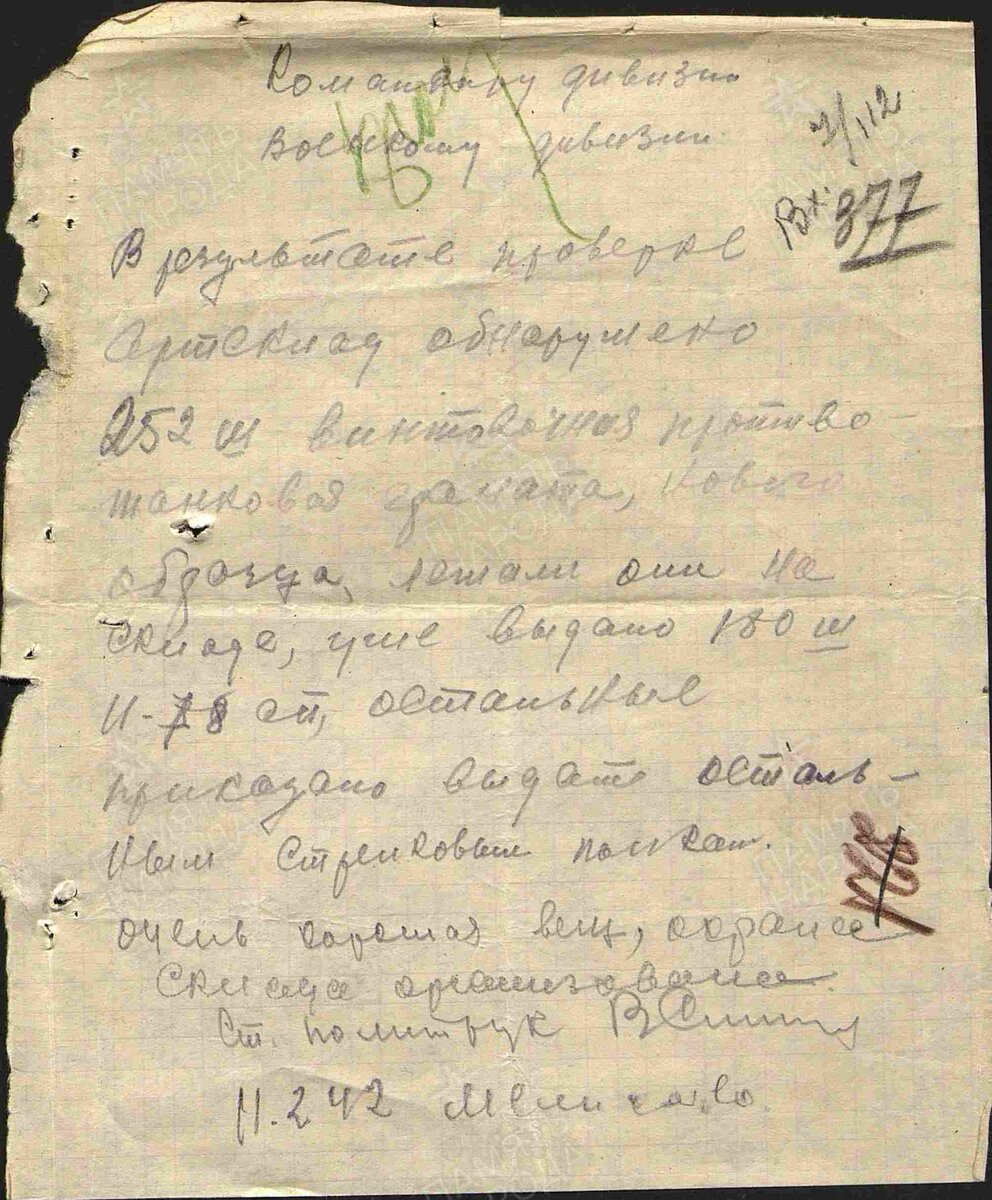 Командиру дивизии
Военкому дивизии
Вх. 377
В результате проверке
Артсклад обнаружено
252 ш винтовочная противо-
танковая граната, нового
образца, лежали они на
складе, уже выдано 180 ш
II-78 сп, остальные
приказано выдать осталь-
ным стрелковым полкам.
очень хорошая вещ, охрана
склада организована.
Ст. политрук
11.2 42 Мелихово.